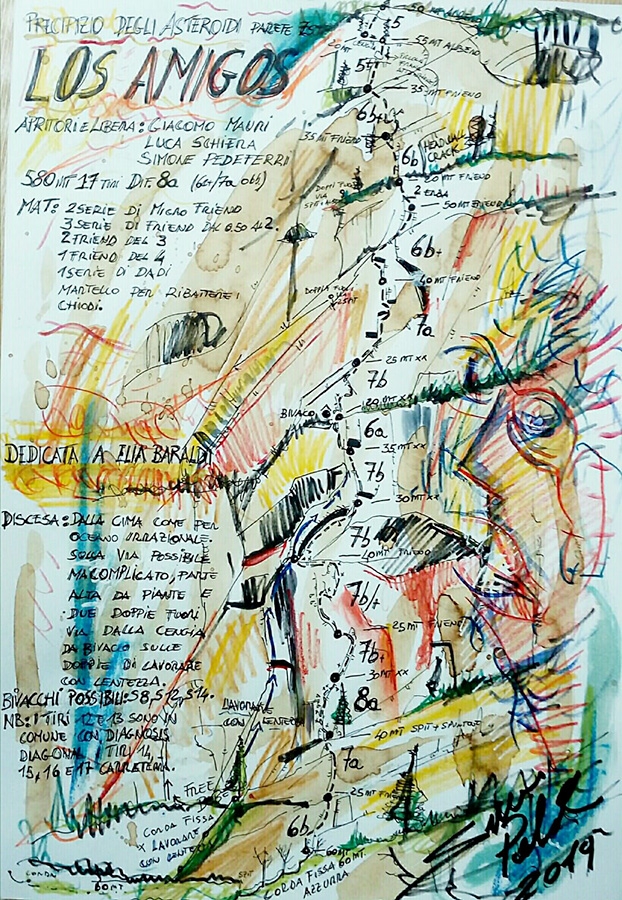 PRECIPIZIO DEGLI ASTEROIDI PARETE EST
LOS AMIGOS
APRITORI E LIBERA: GIACOMO MAURI
LUCA SCHIERA
SIMONE PEDEFERRI
580 MT 17 TIRI DIF. 8a (6b+/7a obb)
MAT: 2 SERIE DI MICRO FRIEND
3 SERIE DI FRIEND DAL 0.50 AL 2.
2 FRIEND DEL 3
1 FRIEND DEL 4
1 SERIE DI DADI
MARTELLO PER RIBATTERE I
CHIODI.
DEDICATA A ELIA BARALDI
DISCESA: DALLA CIMA COME PER
OCEANO IRRAZIONALE.
SULLA VIA POSSIBILE
MA COMPLICATO, PARTE
ALTA DA PIANTE E
DUE DOPPIE FUORI
VIA DALLA CENGIA
DA BIVACCO SULLE
DOPPIE DI LAVORARE
CON LENTEZZA.
BIVACCHI POSSIBILI: S8, S12, S14.
NB: I TIRI 12 E 13 SONO IN
COMUNE CON DIAGNOSIS
DIAGONAL I TIRI 14,
15, 16 E 17 CARRETERA.
5
20 MT
55 MT ALBERO
5+
35 MT FRIEND
6b+
35 MT FRIEND
HEADWALL
CRACK
6b
20 MT FRIEND
2 ERBA
50 MT FRIEND
6b+
40 MT FRIEND
DOPPIA FUORI
VIA
25 MT
7a
25 MT XX
7b
20 MT XX
BIVACO
6a
35 MT XX
7b
30 MT XX
7b
40 MT FRIEND
7b/+
25 MT FRIEND
7b+
30 MT XX
8a
LAVORARE
CON LENTEZZA
40 MT SPIT + SANTONE
7a
25 MT FRIEND
FREE
CORDA FISSA
X LAVORARE
CON LENTEZZA
6b
60 MT
CORDA FISSA 60 MT.
AZZURRA
CORDA
60 MT
SPIT
2019